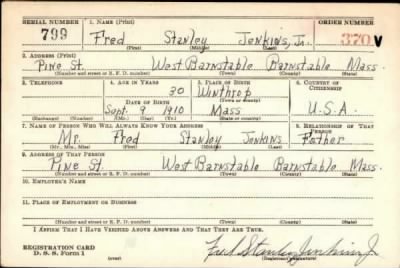 SERIAL NUMBER 1. NAME (Print) ORDER NUMBER
799 Fred Stanley Jenkins, Jr. 370 V
(First) (Middle) (Last)
2. ADDRESS (Print)
Pine St. West Barnstable Barnstable Mass.
(Number and street or R. F. D. number) (Town) (County) (State)
3. TELEPHONE 4. AGE IN YEARS 5. PLACE OF BIRTH 6. COUNTRY OF CITIZENSHIP
30 Winthrop
DATE OF BIRTH (Town or county)
Sept. 9 1910 Mass U.S.A.
(Exchange) (Number) (Mo.) (Day) (Yr.) (State or country)
7. NAME OF PERSON WHO WILL ALWAYS KNOW YOUR ADDRESS 8. RELATIONSHIP OF THAT PERSON
Mr. Fred Stanley Jenkins Father
(Mr., Mrs., Miss) (First) (Middle) (Last)
9. ADDRESS OF THAT PERSON
Pine St West Barnstable Barnstable Mass.
(Number and street or R. F. D. number) (Town) (County) (State)
10. EMPLOYER'S NAME
11. PLACE OF EMPLOYMENT OR BUSINESS
(Number and street or R. F. D. number) (Town) (County) (State)
I AFFIRM THAT I HAVE VERIFIED ABOVE ANSWERS AND THAT THEY ARE TRUE.
REGISTRATION CARD
D. S. S. Form 1 Fred Stanley Jenkins Jr.